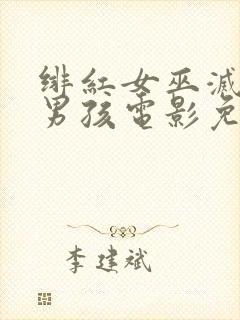 绯红女巫滅
男孩電影免
李建斌